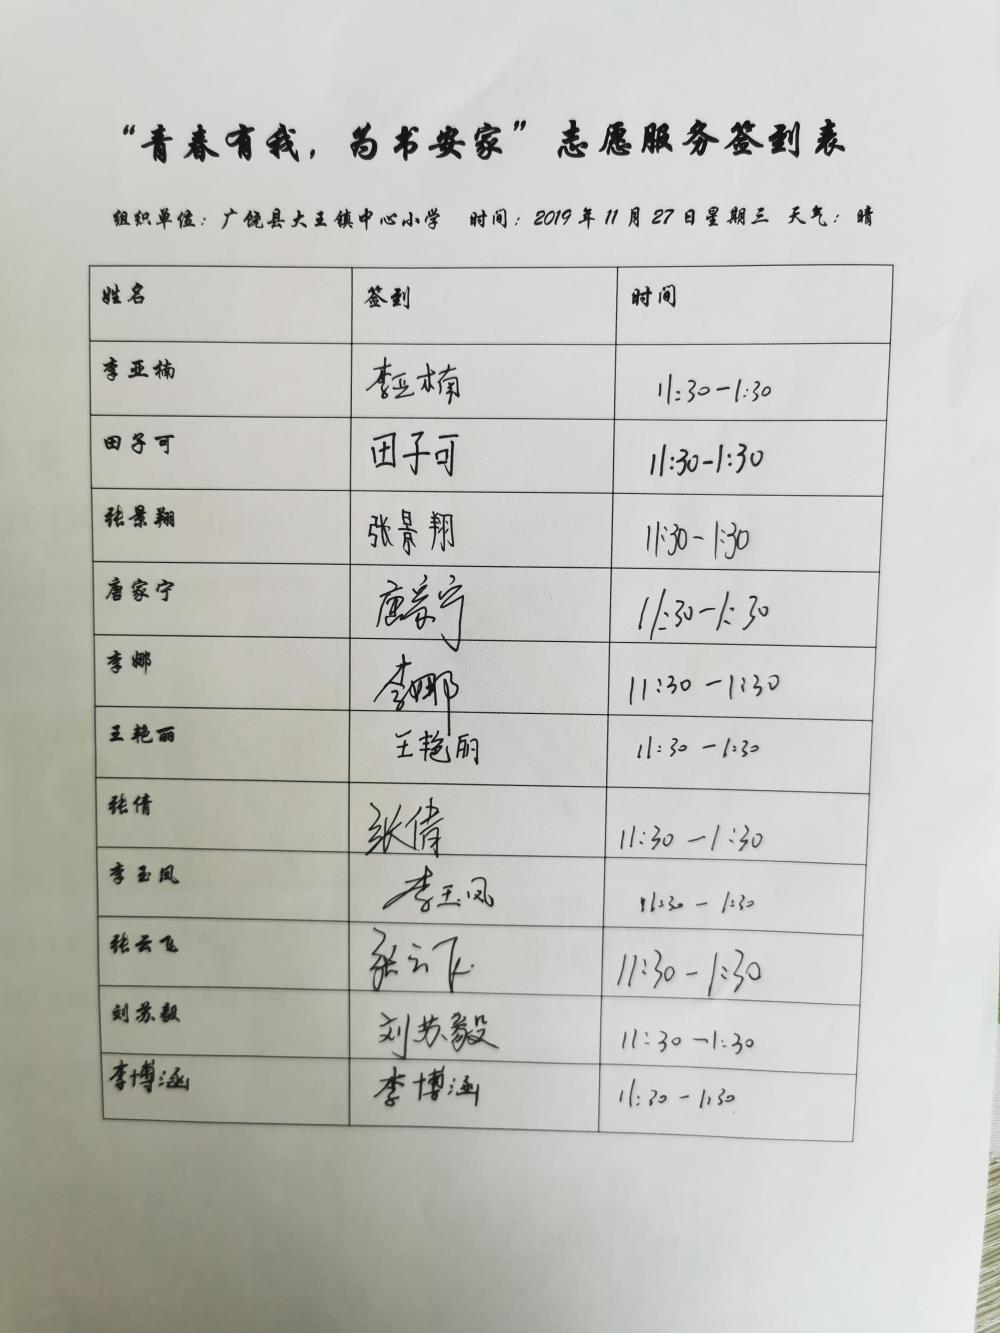 “青春有我，为书安家”志愿服务签到表
组织单位：广饶县大王镇中心小学 时间：2019年11月27日星期三 天气：晴
姓名 签到 时间
李亚楠 李亚楠 11:30-1:30
田子可 田子可 11:30-1:30
张景翔 张景翔 11:30-1:30
唐家宁 唐家宁 11:30-1:30
李娜 李娜 11:30-1:30
王艳丽 王艳丽 11:30-1:30
张倩 张倩 11:30-1:30
李玉凤 李玉凤 11:30-1:30
张云飞 张云飞 11:30-1:30
刘苏毅 刘苏毅 11:30-1:30
李博涵 李博涵 11:30-1:30